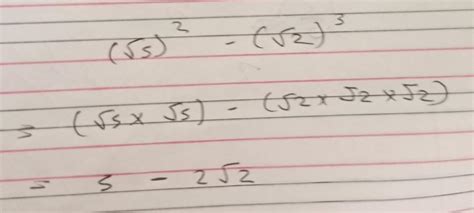 (√5)² - (√2)³
= (√5 × √5) - (√2 × √2 × √2)
= 5 - 2√2